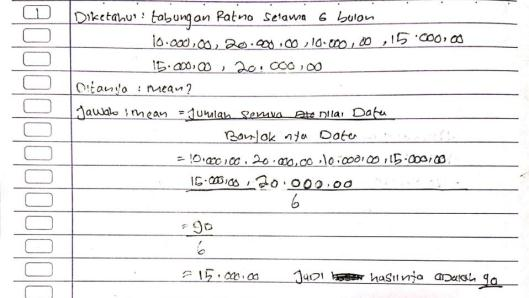 1 Diketahui : tabungan Ratna selama 6 bulan
10.000,00, 20.000,00, 10.000,00, 15.000,00
15.000,00, 20.000,00
Ditanya : mean?
Jawab : mean = Jumlah semua nilai Data
Banyak nya Data
= 10.000,00. 20.000,00. 10.000,00, 15.000,00.
15.000,00, 20.000.00
6
= 90
6
= 15.000.00 Jadi hasilnya adalah 90